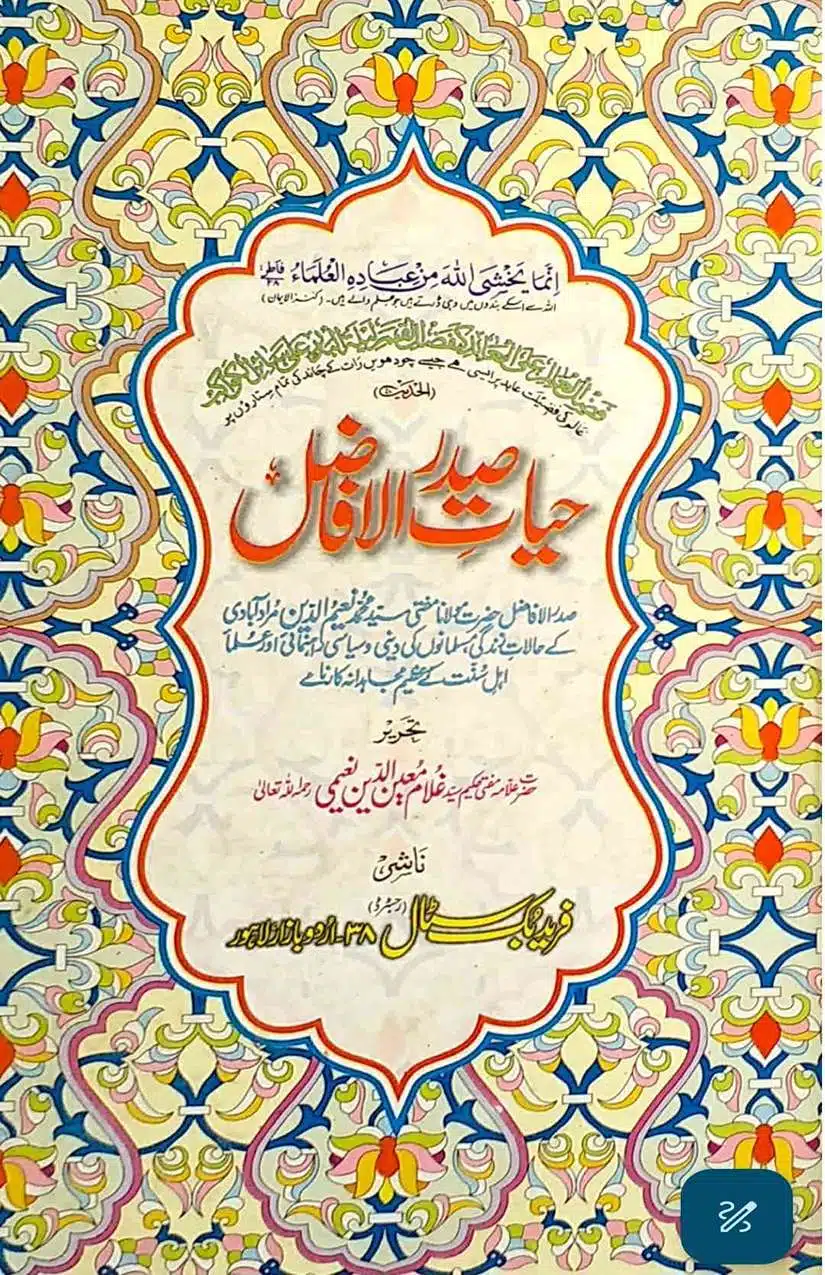 انما یخشی الله من عباده العلماء فاطر ۲۸
اللہ سے اسکے بندوں میں وہی ڈرتے ہیں جو علم والے ہیں۔ (کنز الایمان)
فضل العالم علی العابد کفضل القمر لیلۃ البدر علی سائر الکواکب
عالم کی فضیلت عابد پر ایسی ہے جیسے چودھویں رات کے چاند کی تمام ستاروں پر
(الحدیث)
حیاتِ صدر الافاضل
صدر الافاضل حضرت مولانا مفتی سید محمد نعیم الدین مراد آبادی
کے حالاتِ زندگی، مسلمانوں کی دینی و سیاسی راہنمائی اور علماء
اہلِ سُنّت کے عظیم مجاہدانہ کارنامے
تحریر
حضرت علامہ مفتی حکیم سید غلام معین الدین نعیمی رحمہ اللہ تعالیٰ
ناشر
فرید بک سٹال (رجسٹرڈ) ۳۸۔اردو بازار لاہور